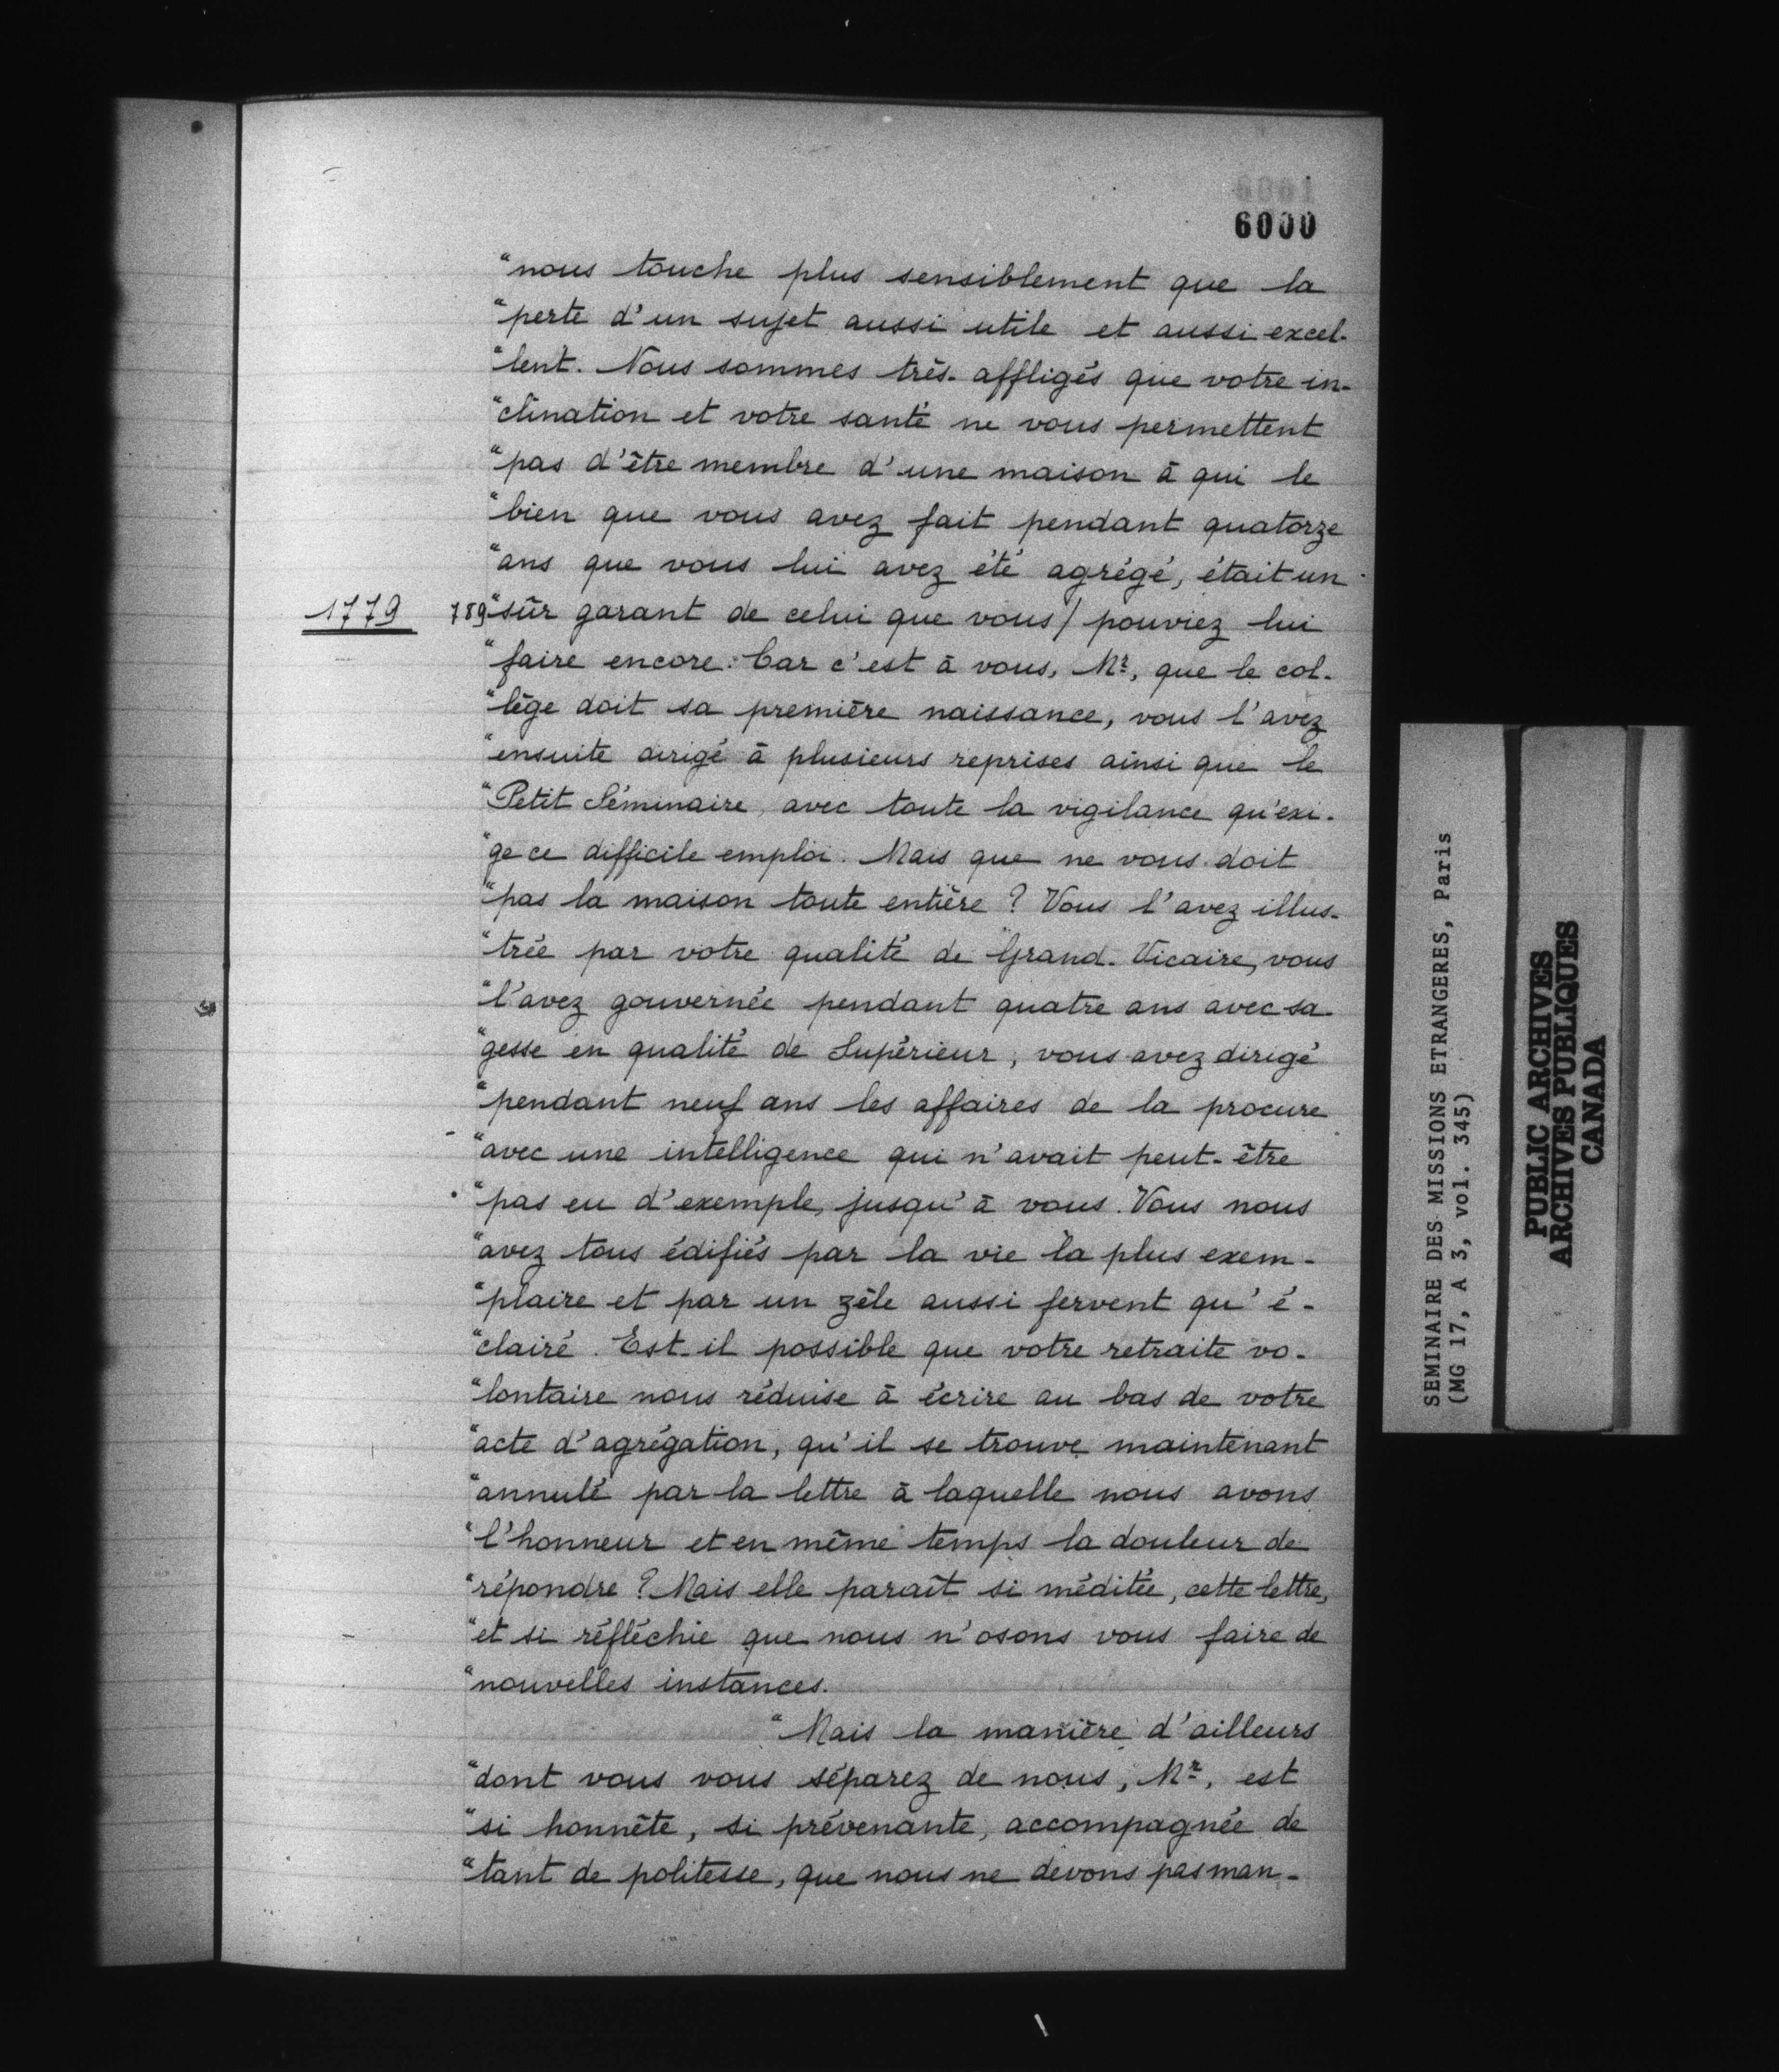 6001
6000
"nous touche plus sensiblement que la
"perte d'un sujet aussi utile et aussi excel-
"lent. Nous sommes très-affligés que votre in-
"clination et votre santé ne vous permettent
"pas d'être membre d'une maison à qui le
"bien que vous avez fait pendant quatorze
"ans que vous lui avez été agrégé, était un
1779 789 "sûr garant de celui que vous / pouviez lui
"faire encore. Car c'est à vous, Mr, que le col-
"lège doit sa première naissance, vous l'avez
"ensuite dirigé à plusieurs reprises ainsi que le
"Petit Séminaire, avec toute la vigilance qu'exi-
"ge ce difficile emploi. Mais que ne vous doit
"pas la maison toute entière ? Vous l'avez illus-
"trée par votre qualité de Grand-Vicaire, vous
"l'avez gouvernée pendant quatre ans avec sa-
"gesse en qualité de Supérieur, vous avez dirigé
"pendant neuf ans les affaires de la procure
"avec une intelligence qui n'avait peut-être
"pas eu d'exemple, jusqu'à vous. Vous nous
"avez tous édifiés par la vie la plus exem-
"plaire et par un zèle aussi fervent qu'é-
"clairé. Est-il possible que votre retraite vo-
"lontaire nous réduise à écrire au bas de votre
"acte d'agrégation, qu'il se trouve maintenant
"annulé par la lettre à laquelle nous avons
"l'honneur et en même temps la douleur de
"répondre ? Mais elle paraît si méditée, cette lettre,
"et si réfléchie que nous n'osons vous faire de
"nouvelles instances.
"Mais la manière d'ailleurs
"dont vous vous séparez de nous, Mr, est
"si honnête, si prévenante, accompagnée de
"tant de politesse, que nous ne devons pas man-
SEMINAIRE DES MISSIONS ETRANGERES, Paris
(MG 17, A 3, vol. 345)
PUBLIC ARCHIVES
ARCHIVES PUBLIQUES
CANADA